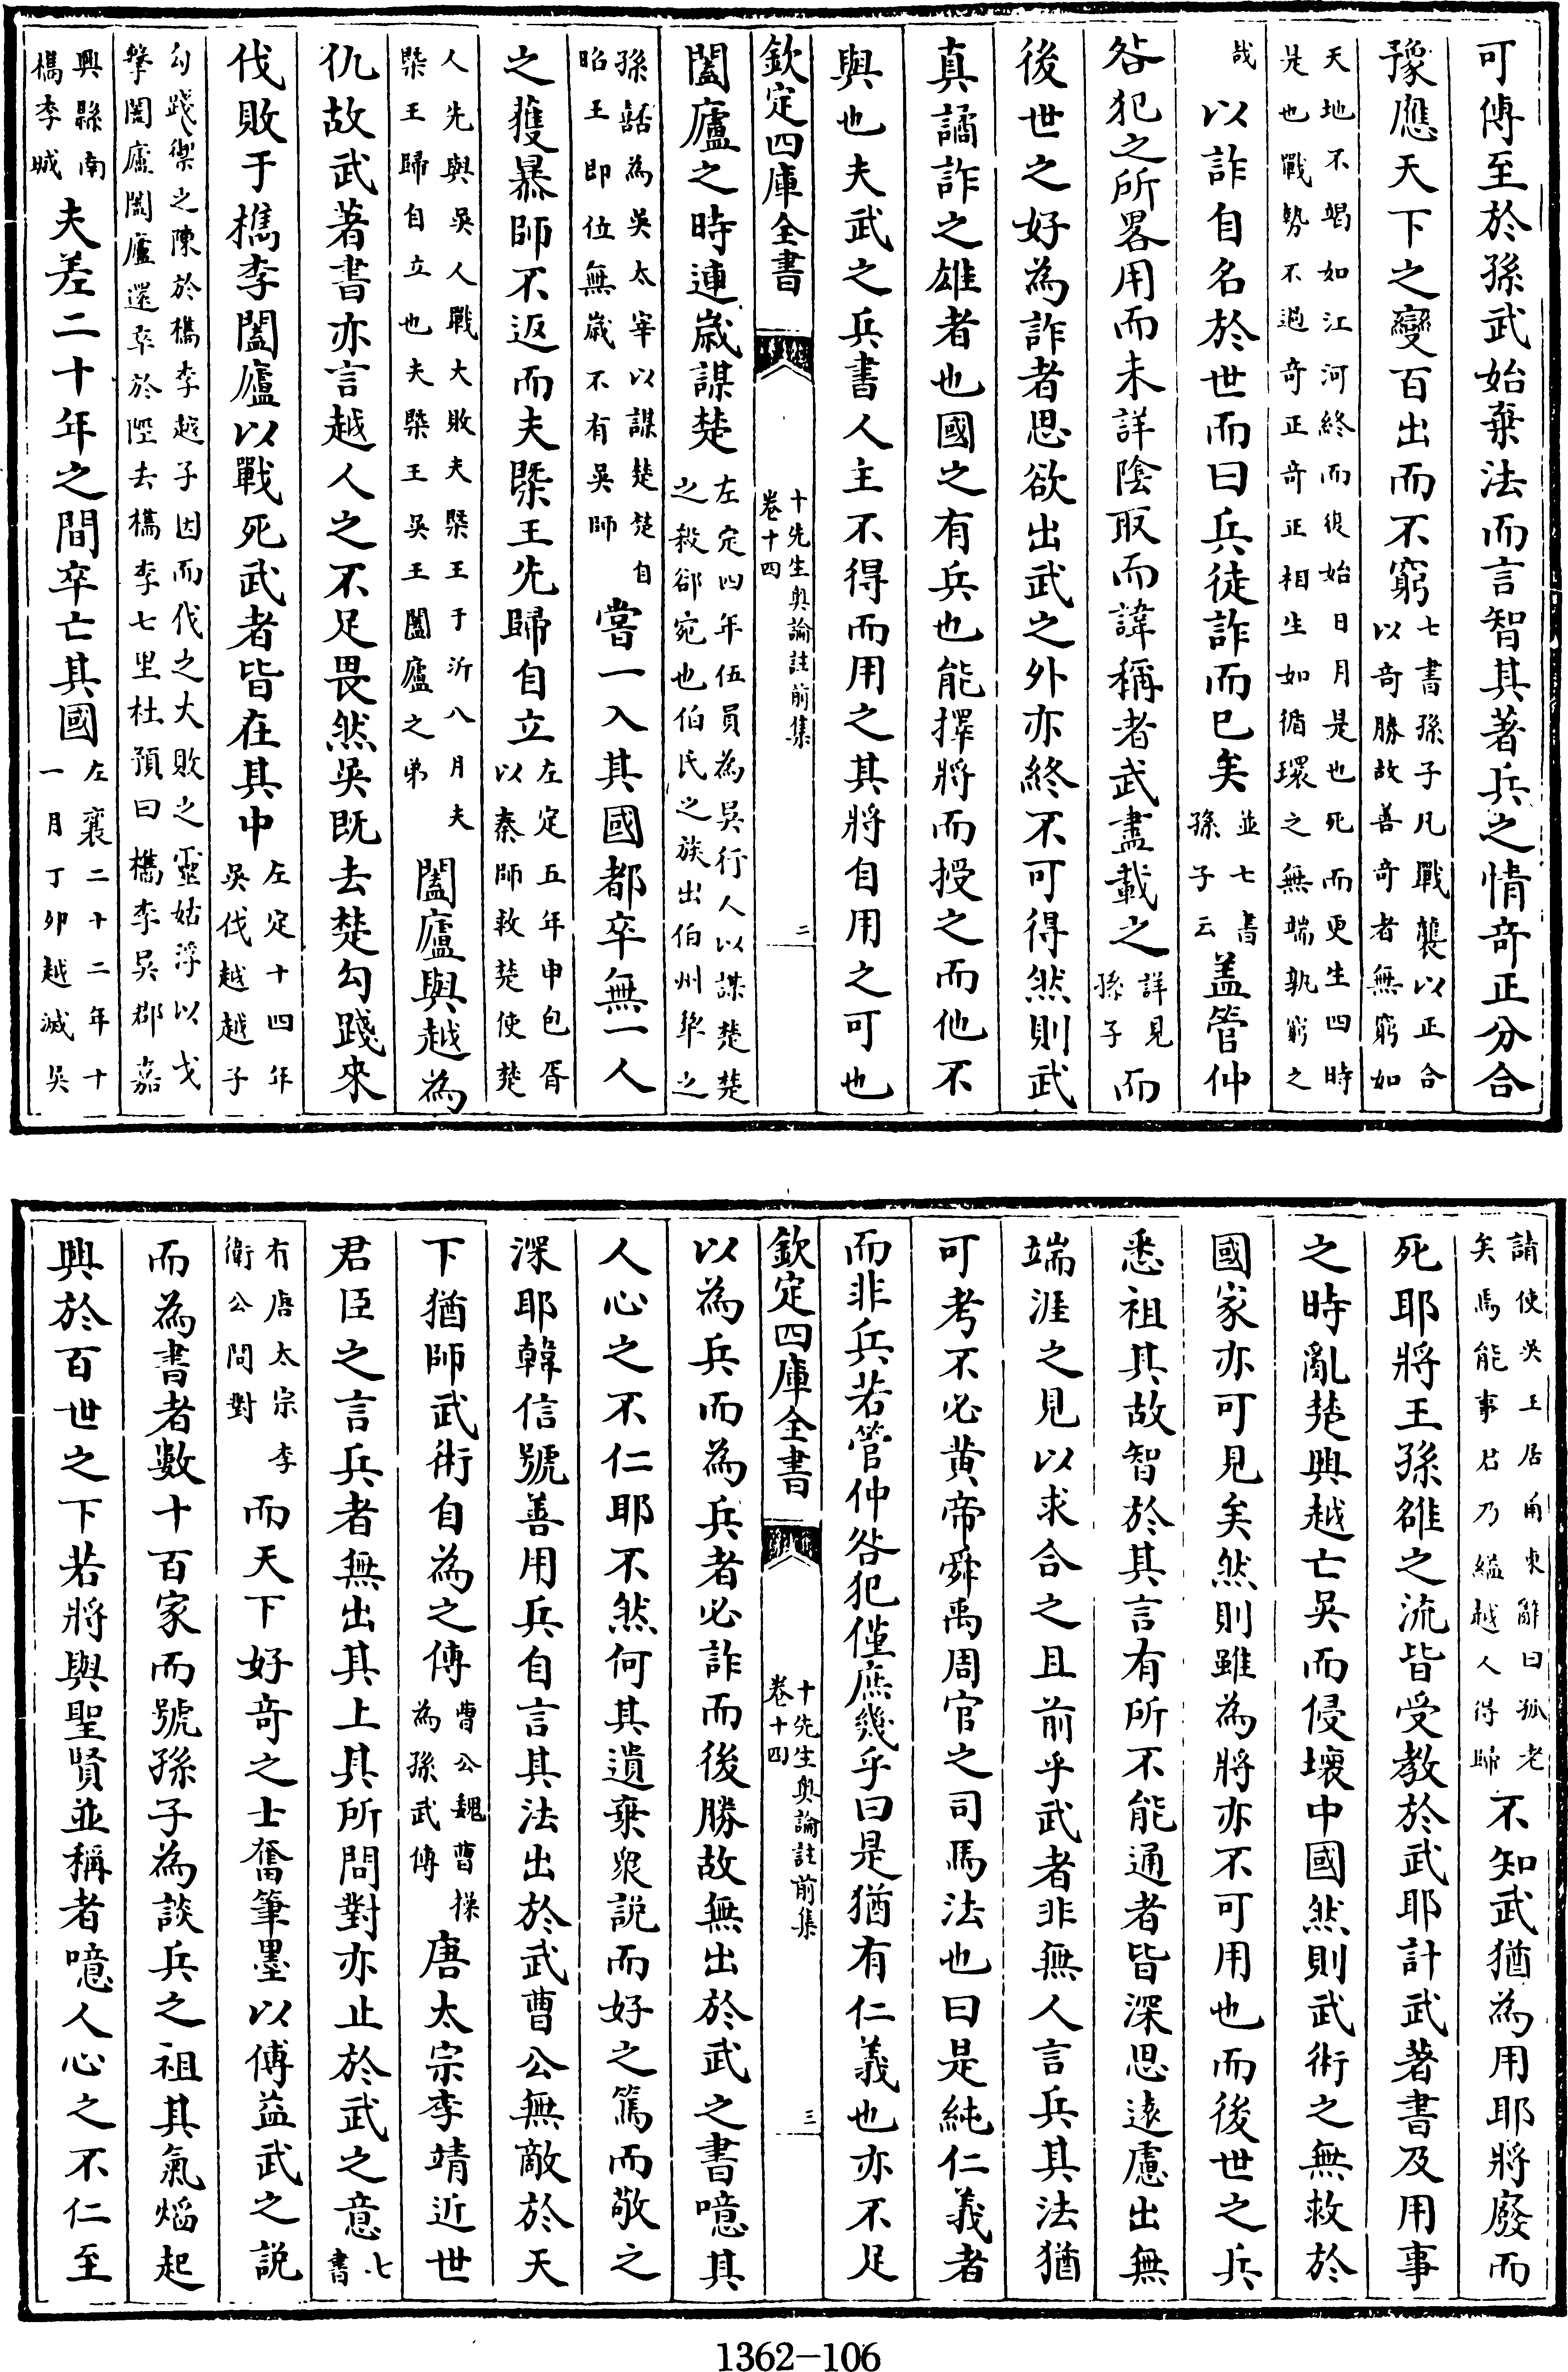 可傅至於孫武始棄法而言智其著兵之情奇正分合
豫應天下之變百出而不窮七書孫子凡戰襲以正合以奇勝故善奇者無窮如
天地不竭如江河終而復始日月是也死而更生四時是也戰勢不過奇正奇正相生如循環之無端孰窮之
哉以詐自名於世而曰兵徒詐而已矣並七書孫子云蓋管仲
咎犯之所畧用而未詳陰取而諱稱者武盡載之詳見孫子而
後世之好為詐者思欲出武之外亦終不可得然則武
真譎詐之雄者也國之有兵也能擇將而授之而他不
與也夫武之兵書人主不得而用之其將自用之可也
欽定四庫全書 十先生奧論註前集卷十四 二
闔廬之時連歲謀楚左定四年伍員為吳行人以謀楚楚之殺郤宛也伯氏之族出伯州犂之
孫嚭為吳太宰以謀楚楚自昭王即位無歲不有吳師嘗一入其國都卒無一人
之獲暴師不返而夫槩王先歸自立左定五年申包胥以秦師救楚使楚
人先與吳人戰大敗夫槩王于沂八月夫槩王歸自立也夫槩王吳王闔廬之弟闔廬與越為
仇故武著書亦言越人之不足畏然吳既去楚勾踐來
伐敗于檇李闔廬以戰死武者皆在其中左定十四年吳伐越越子
勾踐禦之陳於檇李越子因而伐之大敗之靈姑浮以戈擊闔廬闔廬還卒於陘去檇李七里杜預曰檇李吳郡嘉
興縣南檇李城夫差二十年之間卒亡其國左襄二十二年十一月丁卯越滅吳
請使吳王居甬東辭曰孤老矣焉能事君乃縊越人得歸不知武猶為用耶將廢而
死耶將王孫雒之流皆受教於武耶計武著書及用事
之時亂楚興越亡吳而侵壞中國然則武術之無救於
國家亦可見矣然則雖為將亦不可用也而後世之兵
悉祖其故智於其言有所不能通者皆深思遠慮出無
端涯之見以求合之且前乎武者非無人言兵其法猶
可考不必黃帝舜禹周官之司馬法也曰是純仁義者
而非兵若管仲咎犯僅庶幾乎曰是猶有仁義也亦不足
欽定四庫全書 十先生奧論註前集卷十四 三
以為兵而為兵者必詐而後勝故無出於武之書噫其
人心之不仁耶不然何其遺棄衆説而好之篤而敬之
深耶韓信號善用兵自言其法出於武曹公無敵於天
下猶師武術自為之傳曹公魏曹操為孫武傳唐太宗李靖近世
君臣之言兵者無出其上其所問對亦止於武之意七書
有唐太宗李衛公問對而天下好奇之士奮筆墨以傅益武之說
而為書者數十百家而號孫子為談兵之祖其氣焰起
興於百世之下若將與聖賢並稱者噫人心之不仁至
1362-106